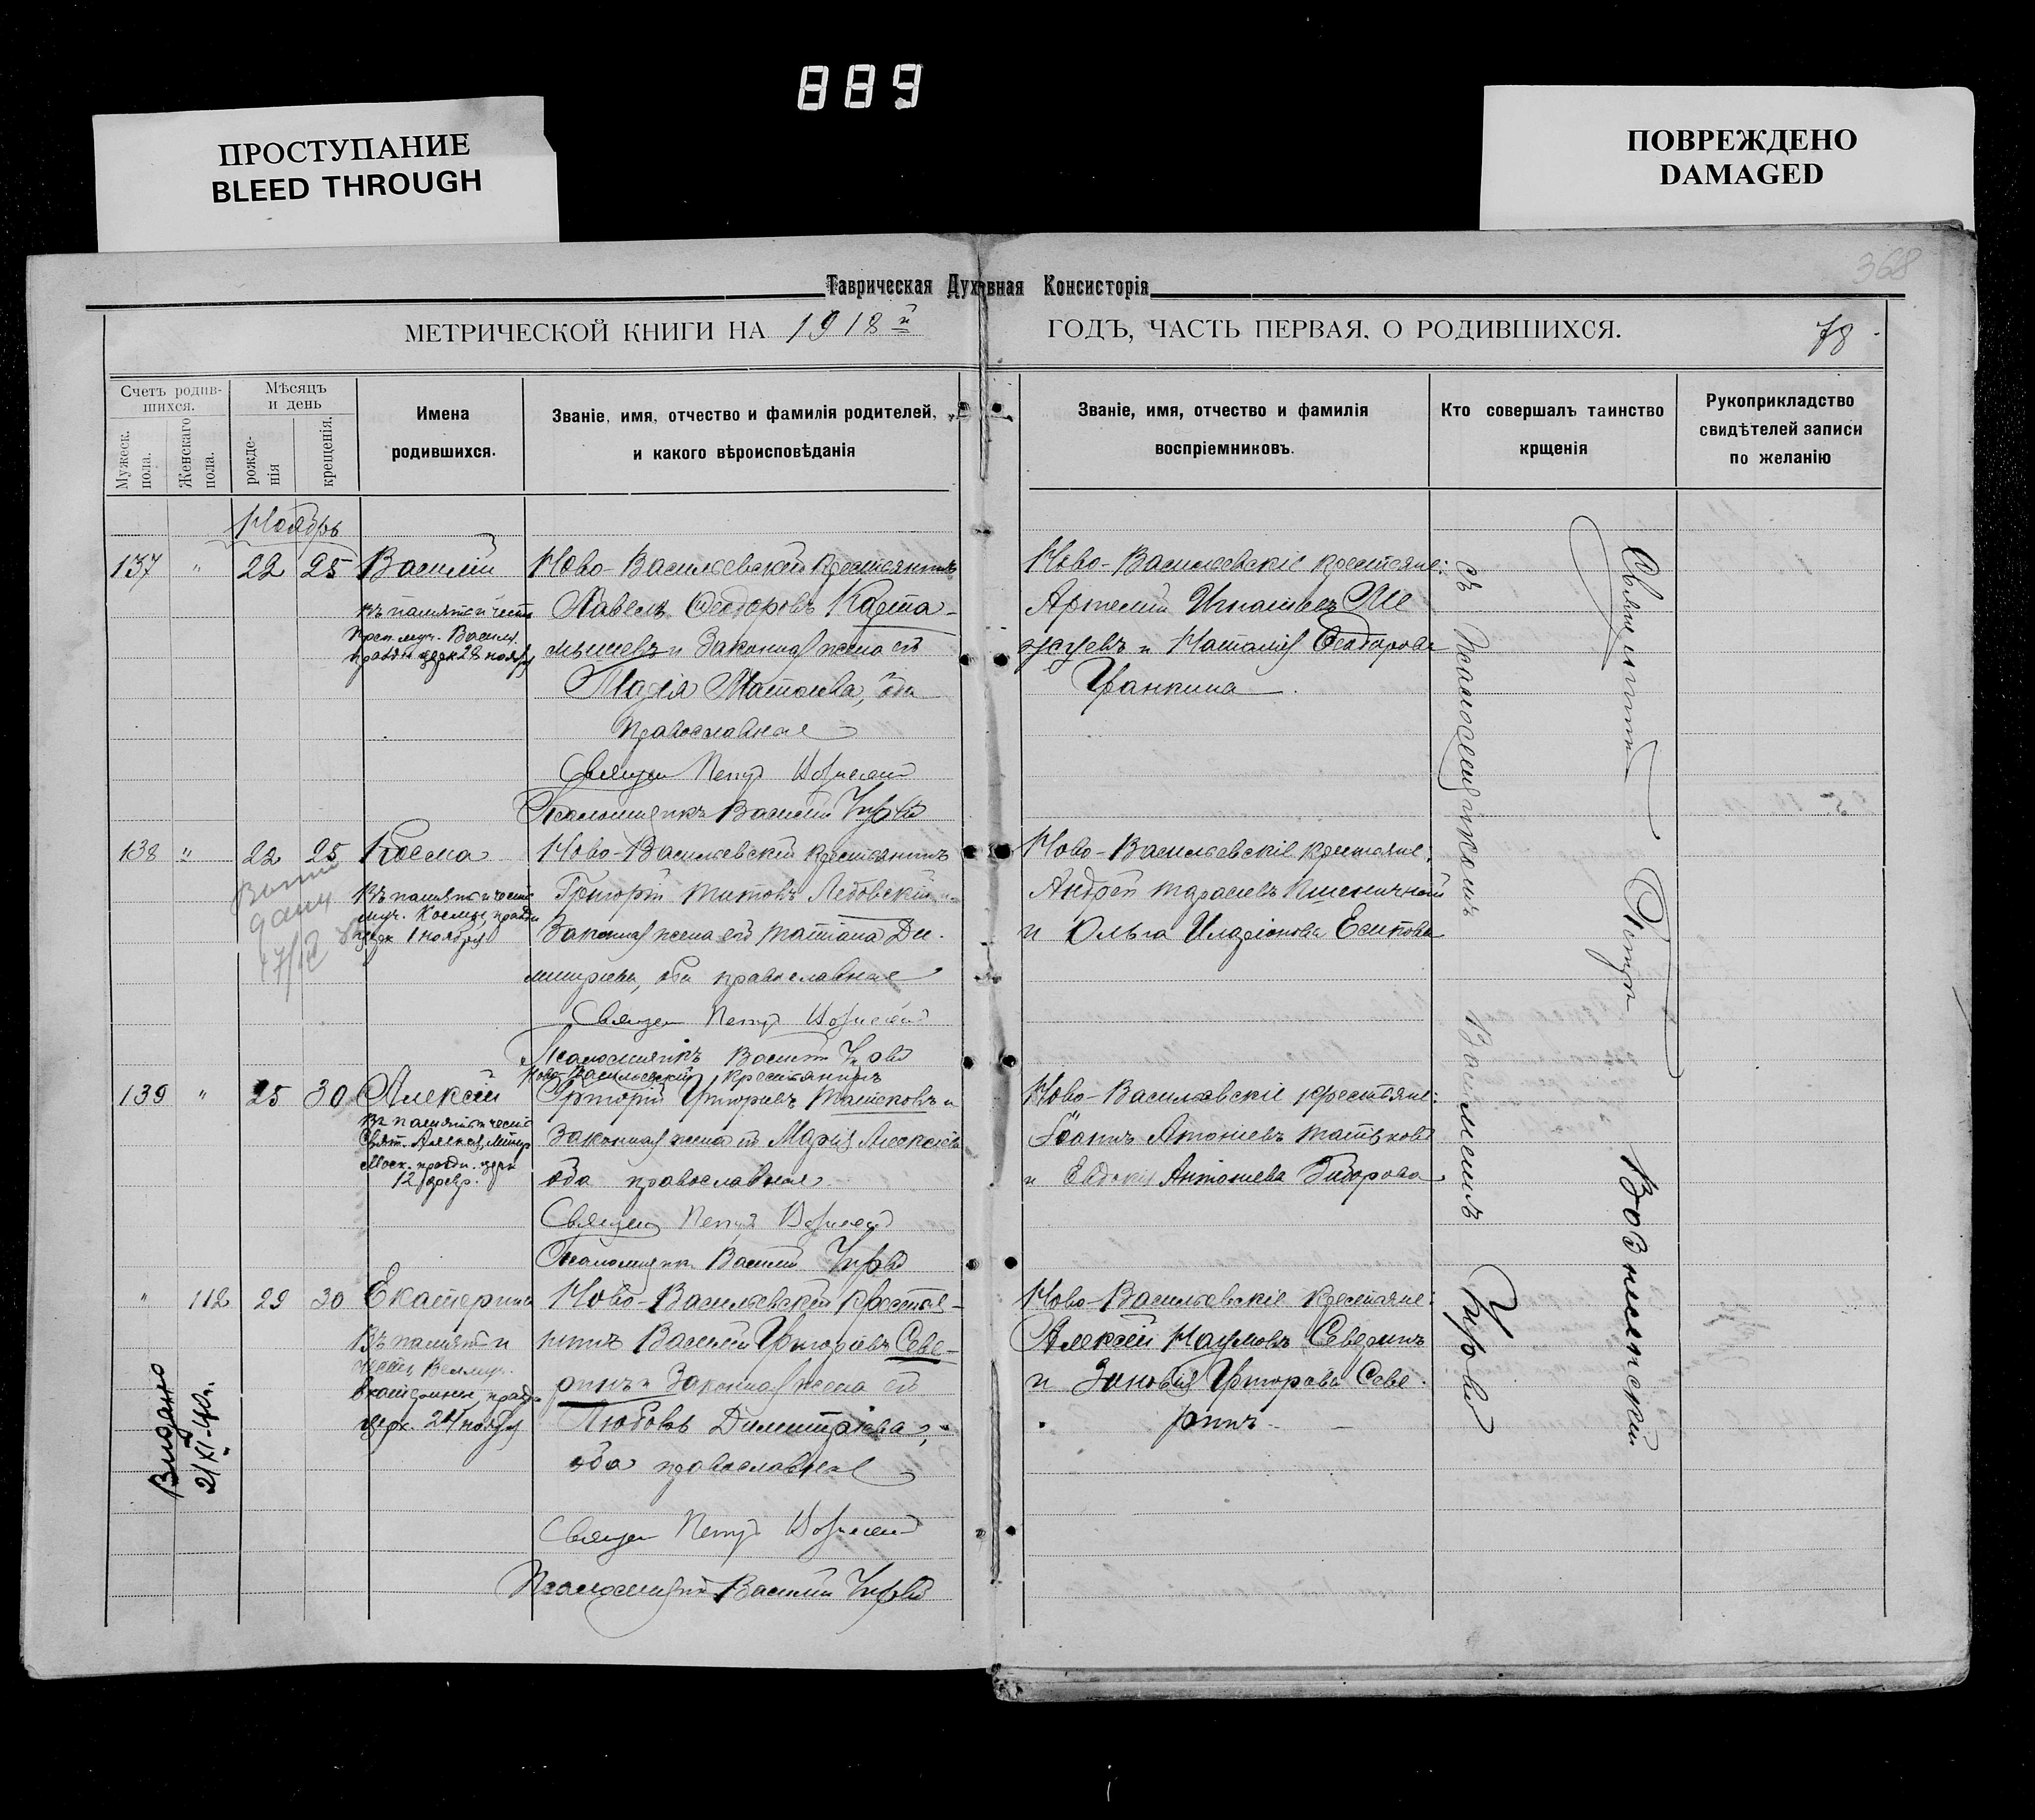 889
ПРОСТУПАНИЕ
BLEED THROUGH
ПОВРЕЖДЕНО
DAMAGED
368
Таврическая Духовная Консисторія
МЕТРИЧЕСКОЙ КНИГИ НА 1918й ГОДЪ, ЧАСТЬ ПЕРВАЯ, О РОДИВШИХСЯ.
78
Счетъ родив-
шихся.
Мужеск. пола.
Женскаго пола.
Мѣсяцъ
и день
рожде-
нія
крещенія.
Имена
родившихся.
Званіе, имя, отчество и фамилія родителей,
и какого вѣроисповѣданія
Званіе, имя, отчество и фамилія
воспріемниковъ.
Кто совершалъ таинство
крщенія
Рукоприкладство
свидѣтелей записи
по желанію
Ноябрь
137 " 22 25 Василій
въ память и честь
преп. муч. Василія
праздн. церк 28 ноября
Ново-Васильевскій крестьянинъ
Павелъ Феодоровъ Карта-
мышевъ и законная жена его
Марія Матвѣева, оба
православные
Священ Петръ Возне
Псаломщикъ Василій
Ново-Васильевскіе крестьяне:
Артемій Игнатьевъ Ше
и Наталія Феодорова
138 " 22 25 Косма
Въ память и честь
муч. Космы, праздн
церк 1 ноября
Ново-Васильевскій крестьянинъ
Григорій Титовъ Ледовскій и
законная жена его Татіана Ди-
митріева, оба православные
Священ Петръ
Псаломщикъ Василій
Ново-Васильевскіе крестьяне:
Андрей Тарасіевъ Пшеничный
и Ольга Иларіонова Есипова
139 " 25 30 Алексій
въ память и честь
Свят. Алексія, Митр
Моск. праздн. церк
12 февр.
Ново-Васильевскій крестьянинъ
Григорій Григорьевъ и
законная жена его Марія Алексіева
оба православные
Священ Петръ
Псаломщикъ Василій
Ново-Васильевскіе крестьяне:
Іоаннъ Антоніевъ
и Евдокія Антоніева
" 112 29 30 Екатерина
Въ память и
честь Великомуч.
Екатерины, праздн
церк. 24 ноября
Ново-Васильевскій крестья-
нинъ Василій Григоріевъ Севе-
ринъ и законная жена его
Любовь Димитріева,
оба православные
Священ Петръ
Псаломщикъ Василій
Ново-Васильевскіе крестьяне:
Алексій Наумовъ Северинъ
и Зиновія Григорьева Севе-
ринъ
Видано
21/XI-40г.
Священникъ Петръ Вознесенскій
съ псаломщикомъ Василіемъ